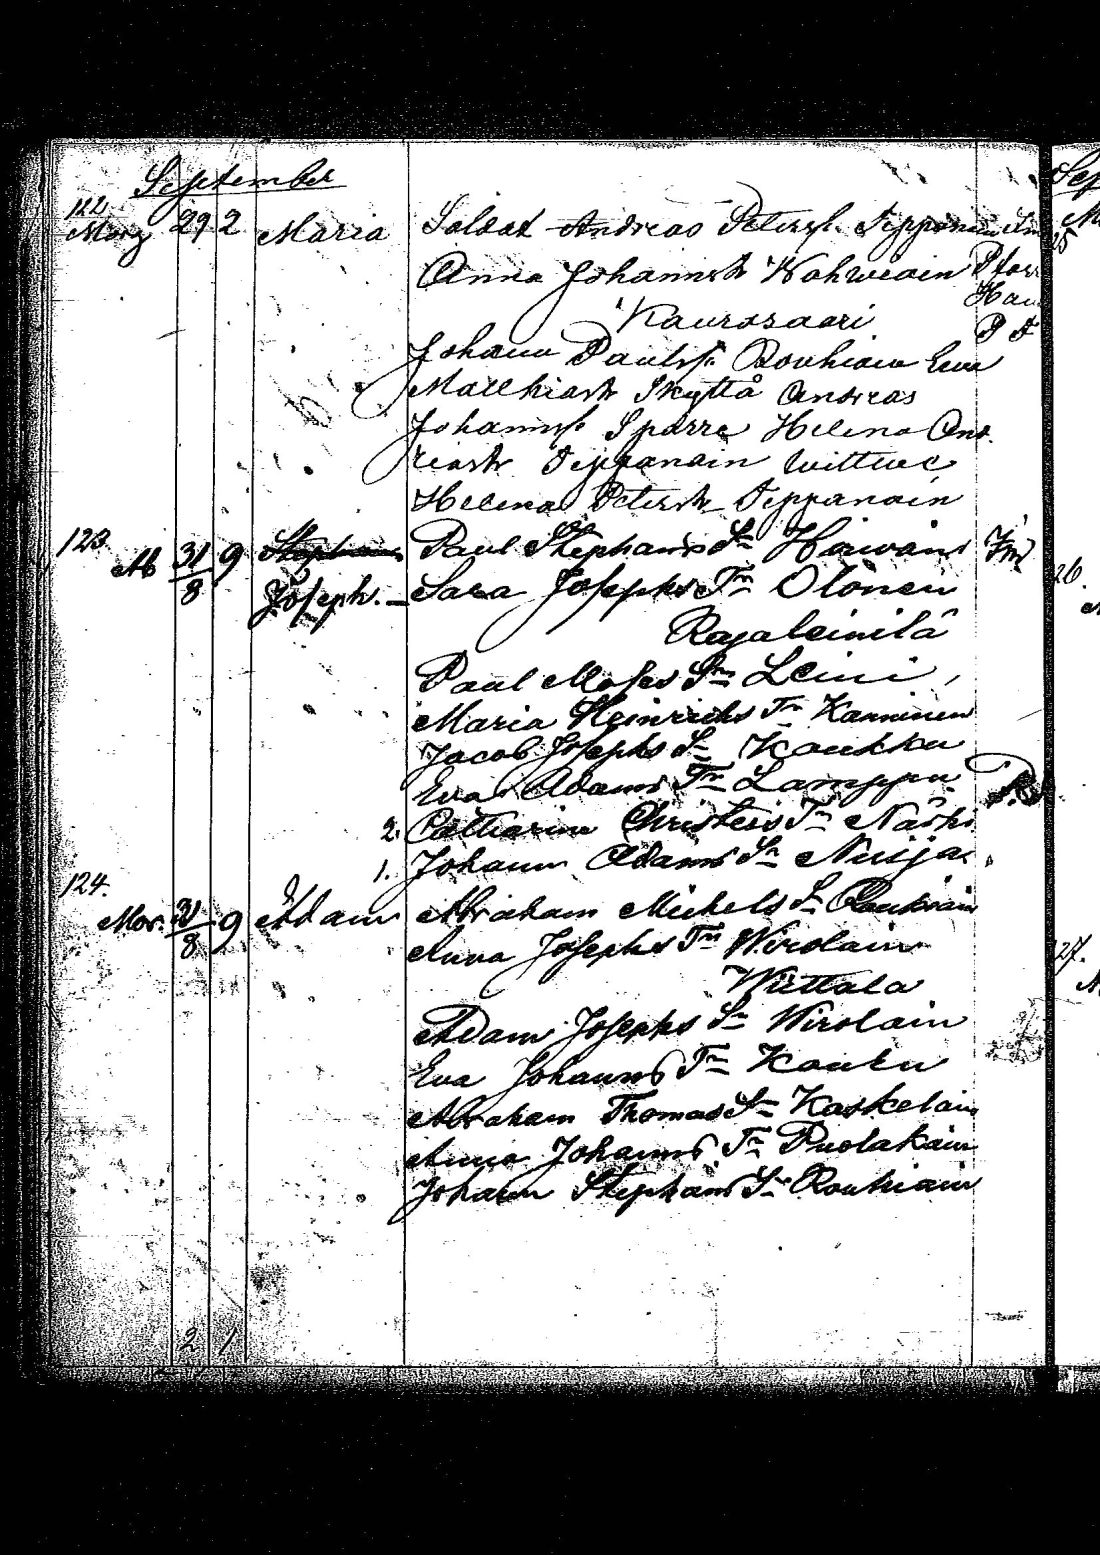 September
122.
Morg 29 2 Maria Soldat Andreas Petersf. Teppanain
Anna Johannsts Wohwiain
Kaurosaari
Johann Paulsf. Rouhiain Eva
Matthiasts Skyttå Andreas
Johannsf. Sparre Helena And
reasts Teppanain Wittwe
Helena Petersts Teppanain
123.
Ab 31/8 9 Paul Stephans Sn
Joseph. Sara Josephs Tn Olonen
Rajaleinilä
Paul Moses Sn Leini,
Maria Heinrichs Tn Kanninen
Jacob Josephs Sn Koukku
Eva Adams Tn Lamppu
2. Catharina Tn
1. Johann Adams Sn Nuija.
124.
Mor. 31/8 9 Adam Abraham Michels Sn Roukiain
Anna Josephs Tn Wirolain
Wiettala
Adam Josephs Sn Wirolain
Eva Johanns Tn
Abraham Thomas Sn Koskelain
Anna Johanns Tn Puolakain
Johann Stephans Sn Roukiain
2 1
26.
27.